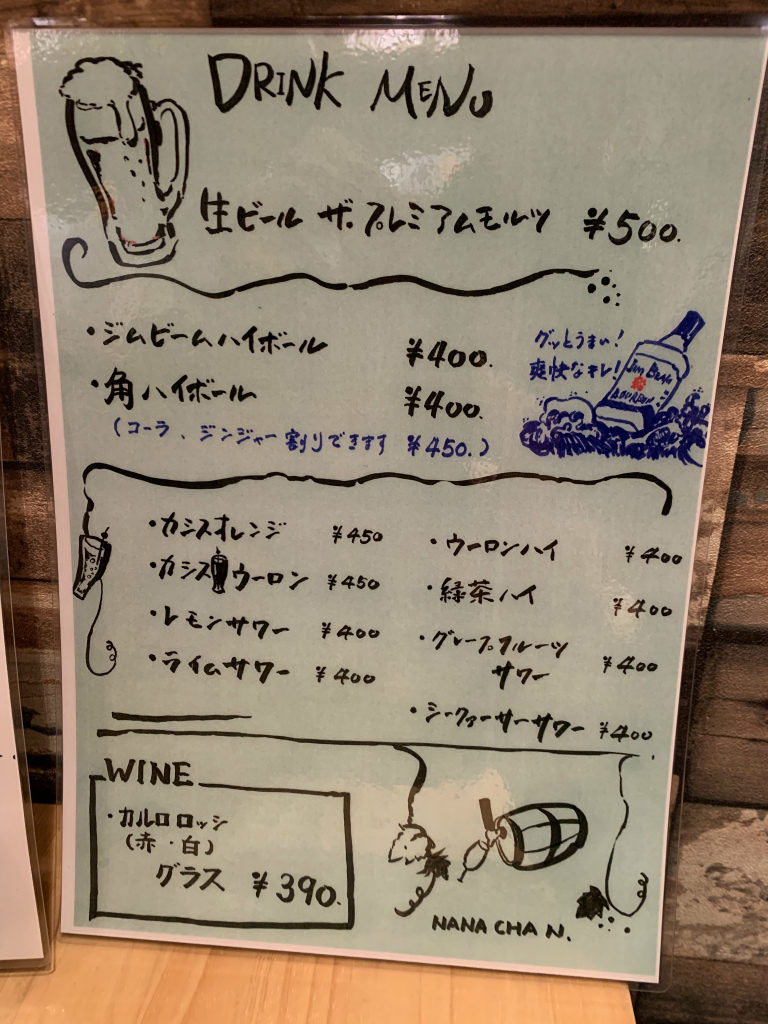 DRINK MENU
生ビール ザ・プレミアムモルツ ¥500.
・ジムビームハイボール ¥400.
・角ハイボール ¥400.
(コーラ、ジンジャー割りできます ¥450.)
グッとうまい!
爽快なキレ!
Jim Beam
BOURBON
・カシスオレンジ ¥450
・カシスウーロン ¥450
・レモンサワー ¥400
・ライムサワー ¥400
・ウーロンハイ ¥400
・緑茶ハイ ¥400
・グレープフルーツ
サワー ¥400
・シークァーサーサワー ¥400
WINE
・カルロロッシ
(赤・白)
グラス ¥390.
NANA CHA N.